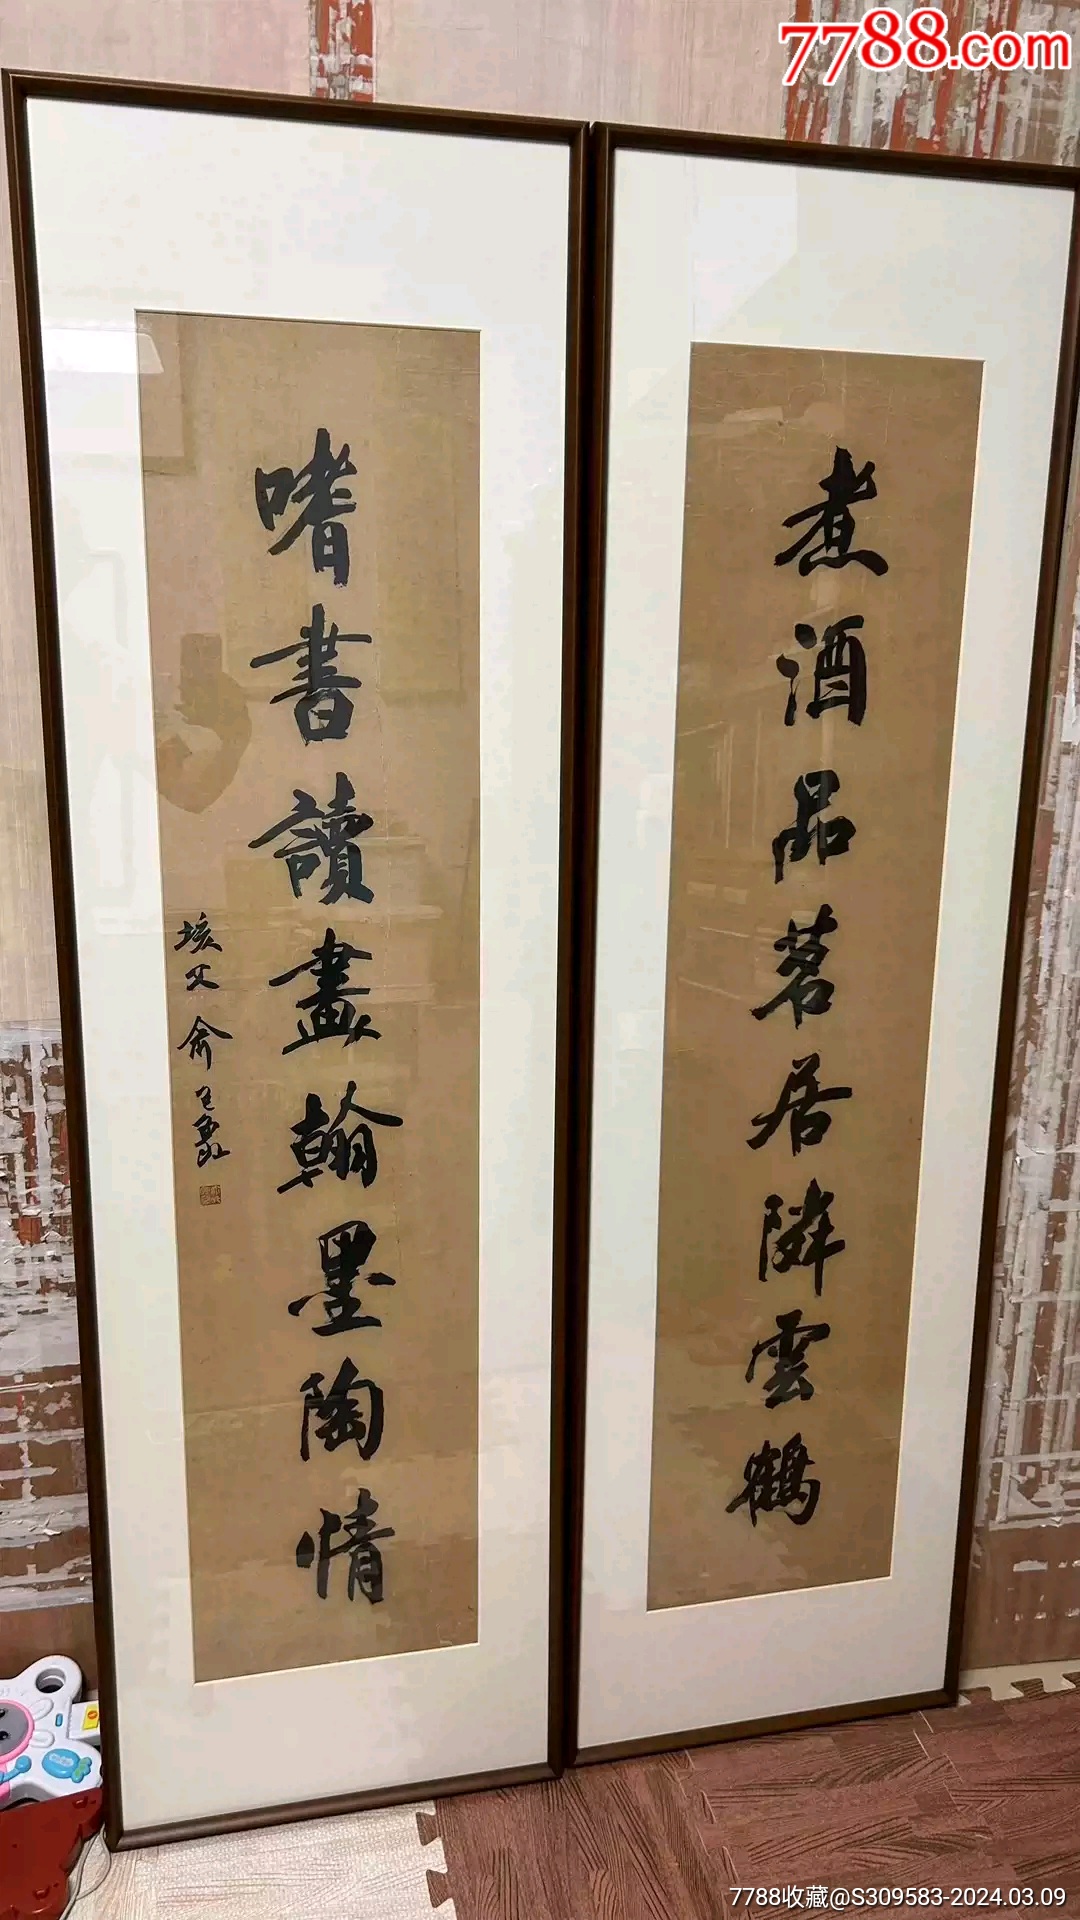 7788.com
煮酒品茗居隣雲鶴
嗜書讀畫翰墨陶情
俞
7788收藏@S309583-2024.03.09